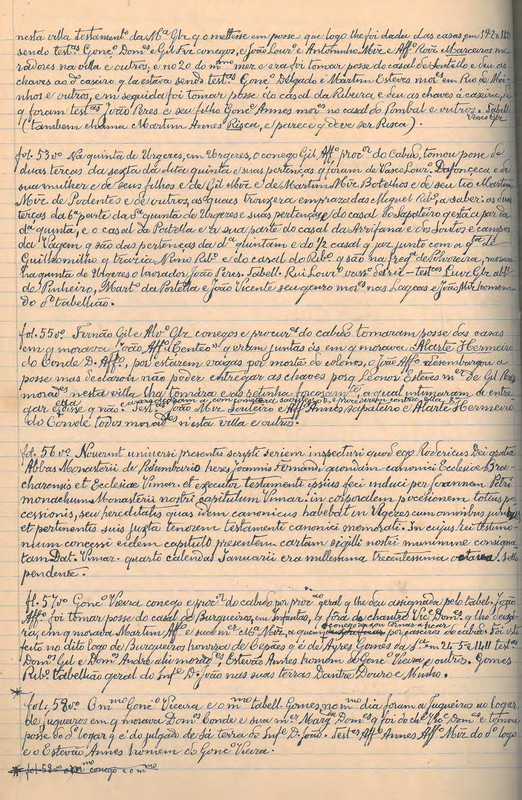 nesta villa testamentº da Mª Glz q o mettesse em posse que logo lhe foi dada das casas em 14-2-
sendo testas Gonçº Domes e Gil Frz conegos, e João Lourº e Antoninho Miz e Affº Roiz Marceiros mo-
radores na villa e outros; e no 20 do mmo mez e era foi tomar posse do casal de Fontello e deu as
chaves ao Caseiro q la estava sendo testas Gonçº Delgado e Martim Esteves mores em Rio de Moi-
nhos e outros, em seguida foi tomar posse do casal da Ribeira e deu as chaves á caseira, do
q foram testas João Peres e seu filho Gonçº Annes mores no casal do Pombal e outros. Tabell.
(tambem chama Martim Annes Risca, e parece q deve ser Rusca). Vasco Glz
fol. 53vº Na quinta de Urgeres, em Urgeres, o conego Gil Affº procor do Cabido, tomou posse de
duas terças da sexta da dita quinta e suas pertenças q foram de Vasco Lourº Dafonceca e de
sua mulher e de seus filhos e de Gil Miz e de Martim Miz Botelhos e de seu tio Martim
Miz de Podentes e de outros, as quaes trouxera emprazadas Miguel Ribº, a saber: as duas
terças da 6ª parte da dª quinta de Urgeres e suas pertenças e do casal do Sapateiro q está a par da
dª quinta, e o casal da Portella e a sua parte do casal da Arrifana e dos Soutos e campos
da Vagem q são das pertenças da dª quintam e do ½ casal q por junto com a qta de
Guilhomilho q trazia Nuno Ribº e do casal do Ribº q são na fregª de Polvoreira, morava
na quinta de Urgeres o lavrador João Peres. Tabell. Rui Lourº testas Luiz Glz abbe
do Pinheiro, Martº da Portella e João Vicente seu genro mores nas Lageas e João Miz homem
do dº tabellião.
fol. 55vº Fernão Gil e Alvº Glz conegos e procures do cabido tomaram posse das casas
em q morava João Affº d'Centeo e q eram juntas ás em q morava Alarte Hermeiro
do Conde D. Affº, por estarem vagas por morte de colonos, e João Affº desembargou a
posse mas declarou não poder entregar as chaves porq Leonor Esteves mer de Gil Pires
morador nesta villa lha tomára e ob retinha forçosamte, a qual intimaram a entre-
gar e ella disse q não. Testas João Miz Louleiro e Affº Annes sapateiro e Alarte Hermeiro
do Conde todos moradores nesta villa e outros.
fol. 56vº Noverint universi presentis scripti seriem inspecturi quod ego Rodericus Dei gratia
Abbas Monasterii de Palumbario heres Joannis Fernandi quondam canonici Ecclesiæ Bra-
charensis et Ecclesiæ Vimar. et executor testamenti ipsius feci induci per Joannem Petri
monachum Monasterii nostri capitulum Vimar. in corporalem pocetionem totius po-
cessionis, seu hereditatis quas idem canonicus habebat in Ulgezes cum omnibus juribus
et pertinentiis suis juxta tenorem testamenti canonici memorati. In cujus rei testimo-
nium concessi eidem capitulo presentem cartam sigilli nostri munimine consigna-
tam. Dat. Vimar. quarto calendas Januarii era millesima trecentesima octava. Sello
pendente.
fl. 57vº Gonçº Vieira conego e procor do cabido por procão geral q lhe deu assignada pelo tabel. João
Affº foi tomar posse do casal de Burgueiros, em Infantas, q fôra do chantre Vic. Domes q lho deixá-
ra, em q morava Martim Affº e sua mer Mª Miz, a quem por parceiro do cabido. Foi este
feito no dito logo de Burgueiros honrra de Cepães q é de Ayres Gomes da Sª em 21-5-1411 testas
Domes Gil e Domes André ahi mores, Estevão Annes homem de Gonçº Vieira e outros. Gomes
Ribº Tabellião geral do Infe D. João nas suas terras Dantre Douro e Minho.
fol. 58vº O mmo Gonçº Vieira e o mmo tabell. Gomes no mmo dia foram a Fugueiros ao logar
de Fugueros em q morava Domes Conde e sua mer Margda Domes q foi do chte Victe Domes e tomou
posse do dº logar q é do julgado de Sá terra do Infe D. João. Testas Affº Annes Affº Miz do dº logo
e o Estevão Annes homem do Gonçº Vieira.
fol-58vº o mmo conego e o mmo